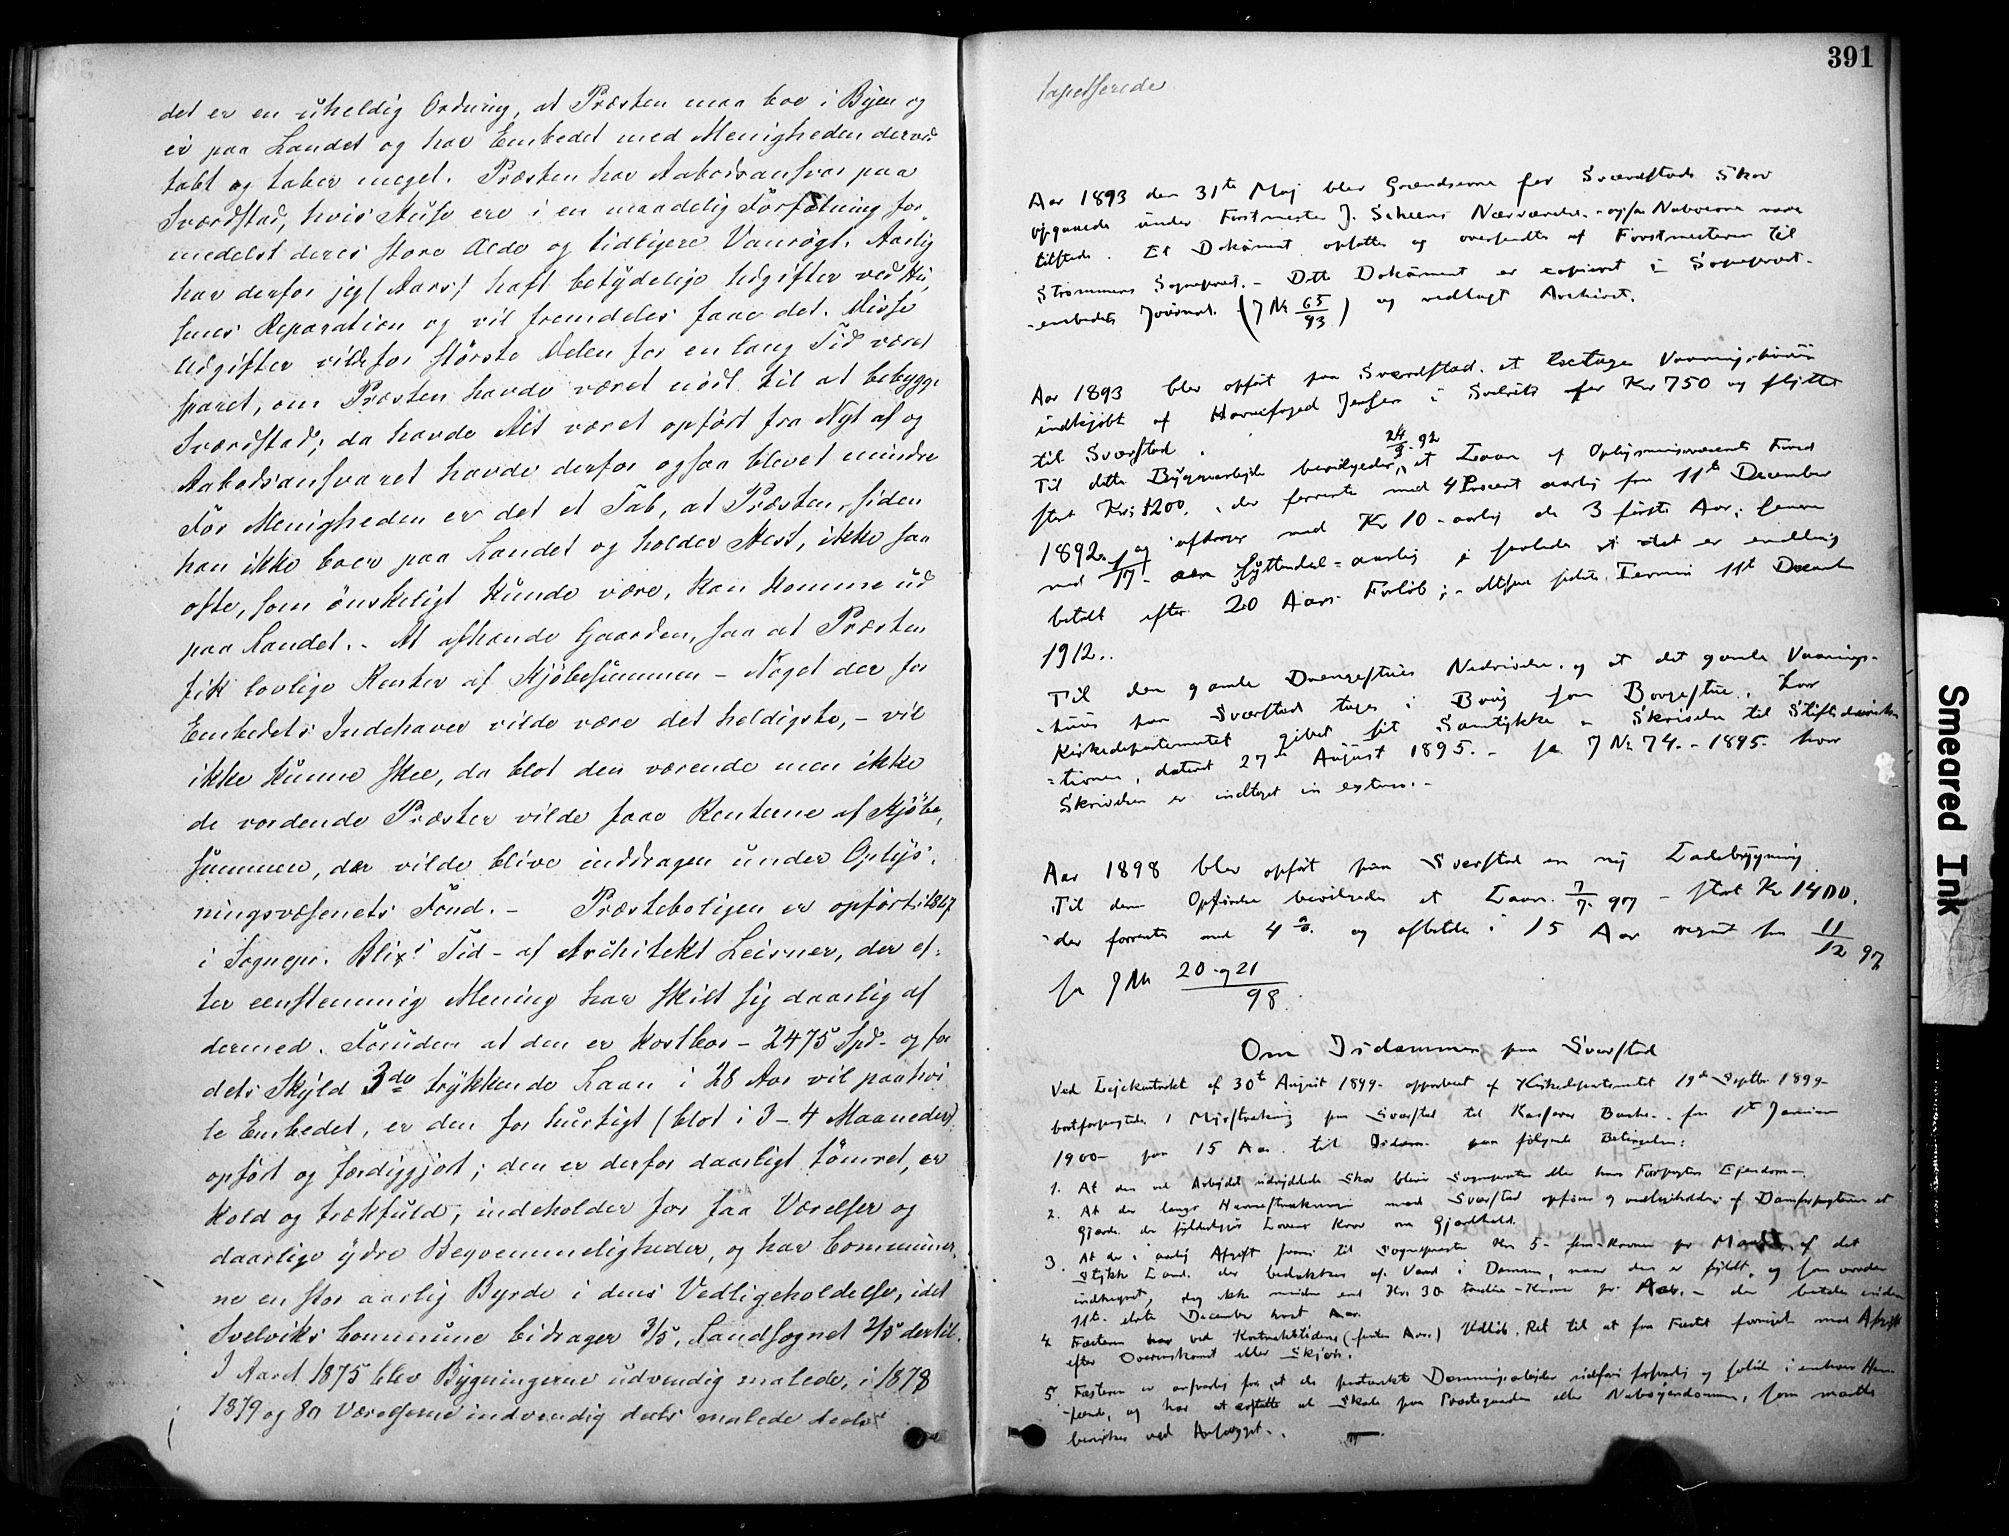 det er en uheldig Ordning, at Præsten maa boe i Byen og
ei paa Landet og har Embedet med Menigheden derved
tabt og taber meget. Præsten har Aabodsansvar paa
Sværdstad, hvis Huse ere i en maadelig Forfatning for-
medelst deres store Ælde og tidligere Vanrøgt. Aarlig
har derfor jeg (Aars) haft betydelige Udgifter ved Hu-
senes Reparation og vil fremdeles faae det. Disse
Udgifter vilde for største Delen for en lang Tid været
sparet, om Præsten havde været nødt til at bebygge
Sværdstad; da havde Alt været opført fra Nyt af og
Aabodsansvaret havde derfor ogsaa blevet mindre
For Menigheden er det et Tab, at Præsten, siden
han ikke boer paa Landet og holder Hest, ikke saa
ofte, som ønskeligt kunde være, kan komme ud
paa Landet. - At afhænde Gaarden, saa at Præsten
fik lovlige Renter af Kjøbesummen - Noget der for
Embedets Indehaver vilde være det heldigste, - vil
ikke kunne skee, da blot den værende men ikke
de vordende Præster vilde faae Renterne af Kjøbe-
summen, der vilde blive inddragen under Oplys-
ningsvæsenets Fond. - Præsteboligen er opført i 1867
i Sognepr. Blix' Tid - af Architekt Leisner, der ef-
ter eenstemmig Mening har skilt sig daarlig af
dermed. Foruden at den er kostbar - 2475 Spd - og for
dets Skyld 3de trykkende Laan i 28 Aar vil paahvi
le Embedet, er den for hurtigt (blot i 3-4 Maaneder)
opført og færdiggjort; den er derfor daarligt tømret, er
kold og trækfuld, indeholder for faa Værelser og
daarlige ydre Beqvemmeligheder, og har Commune-
ne en stor aarlig Byrde i dens Vedligeholdelse, idet
Svelviks Commune bidrager 3/5, Landsognet 2/5 dertil.
I Aaret 1875 blev Bygningerne udvendig malede, i 1878
1879 og 80 Værelserne indvendig deels malede deels
391
tapetserede
Aar 1893 den 31te Maj blev Grændserne for Sværdstads Skov
opgaaede under Forstmester J. Scheens Nærværelse - ogsaa Naboerne vare
tilstede. Et Dokument opsattes og oversendtes af Forstmesteren til
Strømmens Sognepræst. - Dette Dokument er copieret i Sognepræst-
-embedets Journal. (J No 65/93) og vedlagt Archivet.
Aar 1893 blev opført paa Sværdstad et Vaaningshuus
indkjøbt af Havnefoged Jensen i Svelvik for Kr 750 og flyttet
til Sværstad.
Til dette Byggearbejde bevilgedes 24/9 92 et Laan af Oplysningsvæsenets Fond
stort Kr: 1200, der forrentes med 4 Procent aarlig fra 11te December
1892 og afdrages med Kr 10 - aarlig de 3 første Aar; senere
med 1/17 - Syttendel - aarlig saaledes at det er endelig
betalt efter 20 Aars Forløb; - altsaa sidste Termin 11te Decemb
1912..
Til den gamle Drengestues Nedrivelse og at det gamle Vaanings-
-huus paa Sværstad tages i Brug som Borgestue, har
Kirkedepartementet givet sit Samtykke i Skrivelse til Stiftsdirek
-tionen, dateret 27de August 1895. - J No 74. - 1895. hvor
Skrivelsen er indtaget in extenso. -
Aar 1898 blev opført paa Sværstad en ny Ladebygning
Til dens Opførelse bevilgedes et Laan 7/7 97 - stort Kr 1400,
der forrentes med 4 % og afbetales i 15 Aar regnet fra 11/12 97
J No 20 og 21/98
Om Isdammen paa Sværstad
Ved Lejekontrakt af 30te August 1899 - approberet af Kirkedepartementet 19de Septbr 1899 -
bortforpagtedes 1 Myrstrækning paa Sværstad til Kasserer - fra 1te Januar
1900 - paa 15 Aar til Isdam paa følgende Betingelser:
1. At den ved Arbejdet udryddede Skov bliver Sognepræstens eller hans Forpagters Ejendom -
2. At der langs Havnestrækningen mod Sværstad opføres og vedligeholdes af Damforpagteren et
Gjærde der fyldestgjør Lovens Krav om Gjærdehold.
3. At der i aarlig Afgift svares til Sognepræsten Kr 5 - fem - Kroner pr Maal af det
Stykke Land der bedækkes af Vand i Dammen, naar den er fyldt, og som vorder
indhegnet, dog ikke mindre end Kr. 30 tredive - Kroner pr Aar. - der betales inden
11te - ellevte December hvert Aar.
4. Fæsteren har ved Kontraktstidens (femten Aars) Udløb Ret til at faa Fæstet fornyet mod Afgift
efter Overenskomst eller Skjøn.
5. Fæsteren er ansvarlig for, at de Dæmningsarbejder udføres forsvarlig og solid i enhver Hen-
-seende, og har at erstatte al Skade paa Præstegaarden eller Naboejendomme, som maatte
bevirkes ved Anlægget.
Smeared Ink